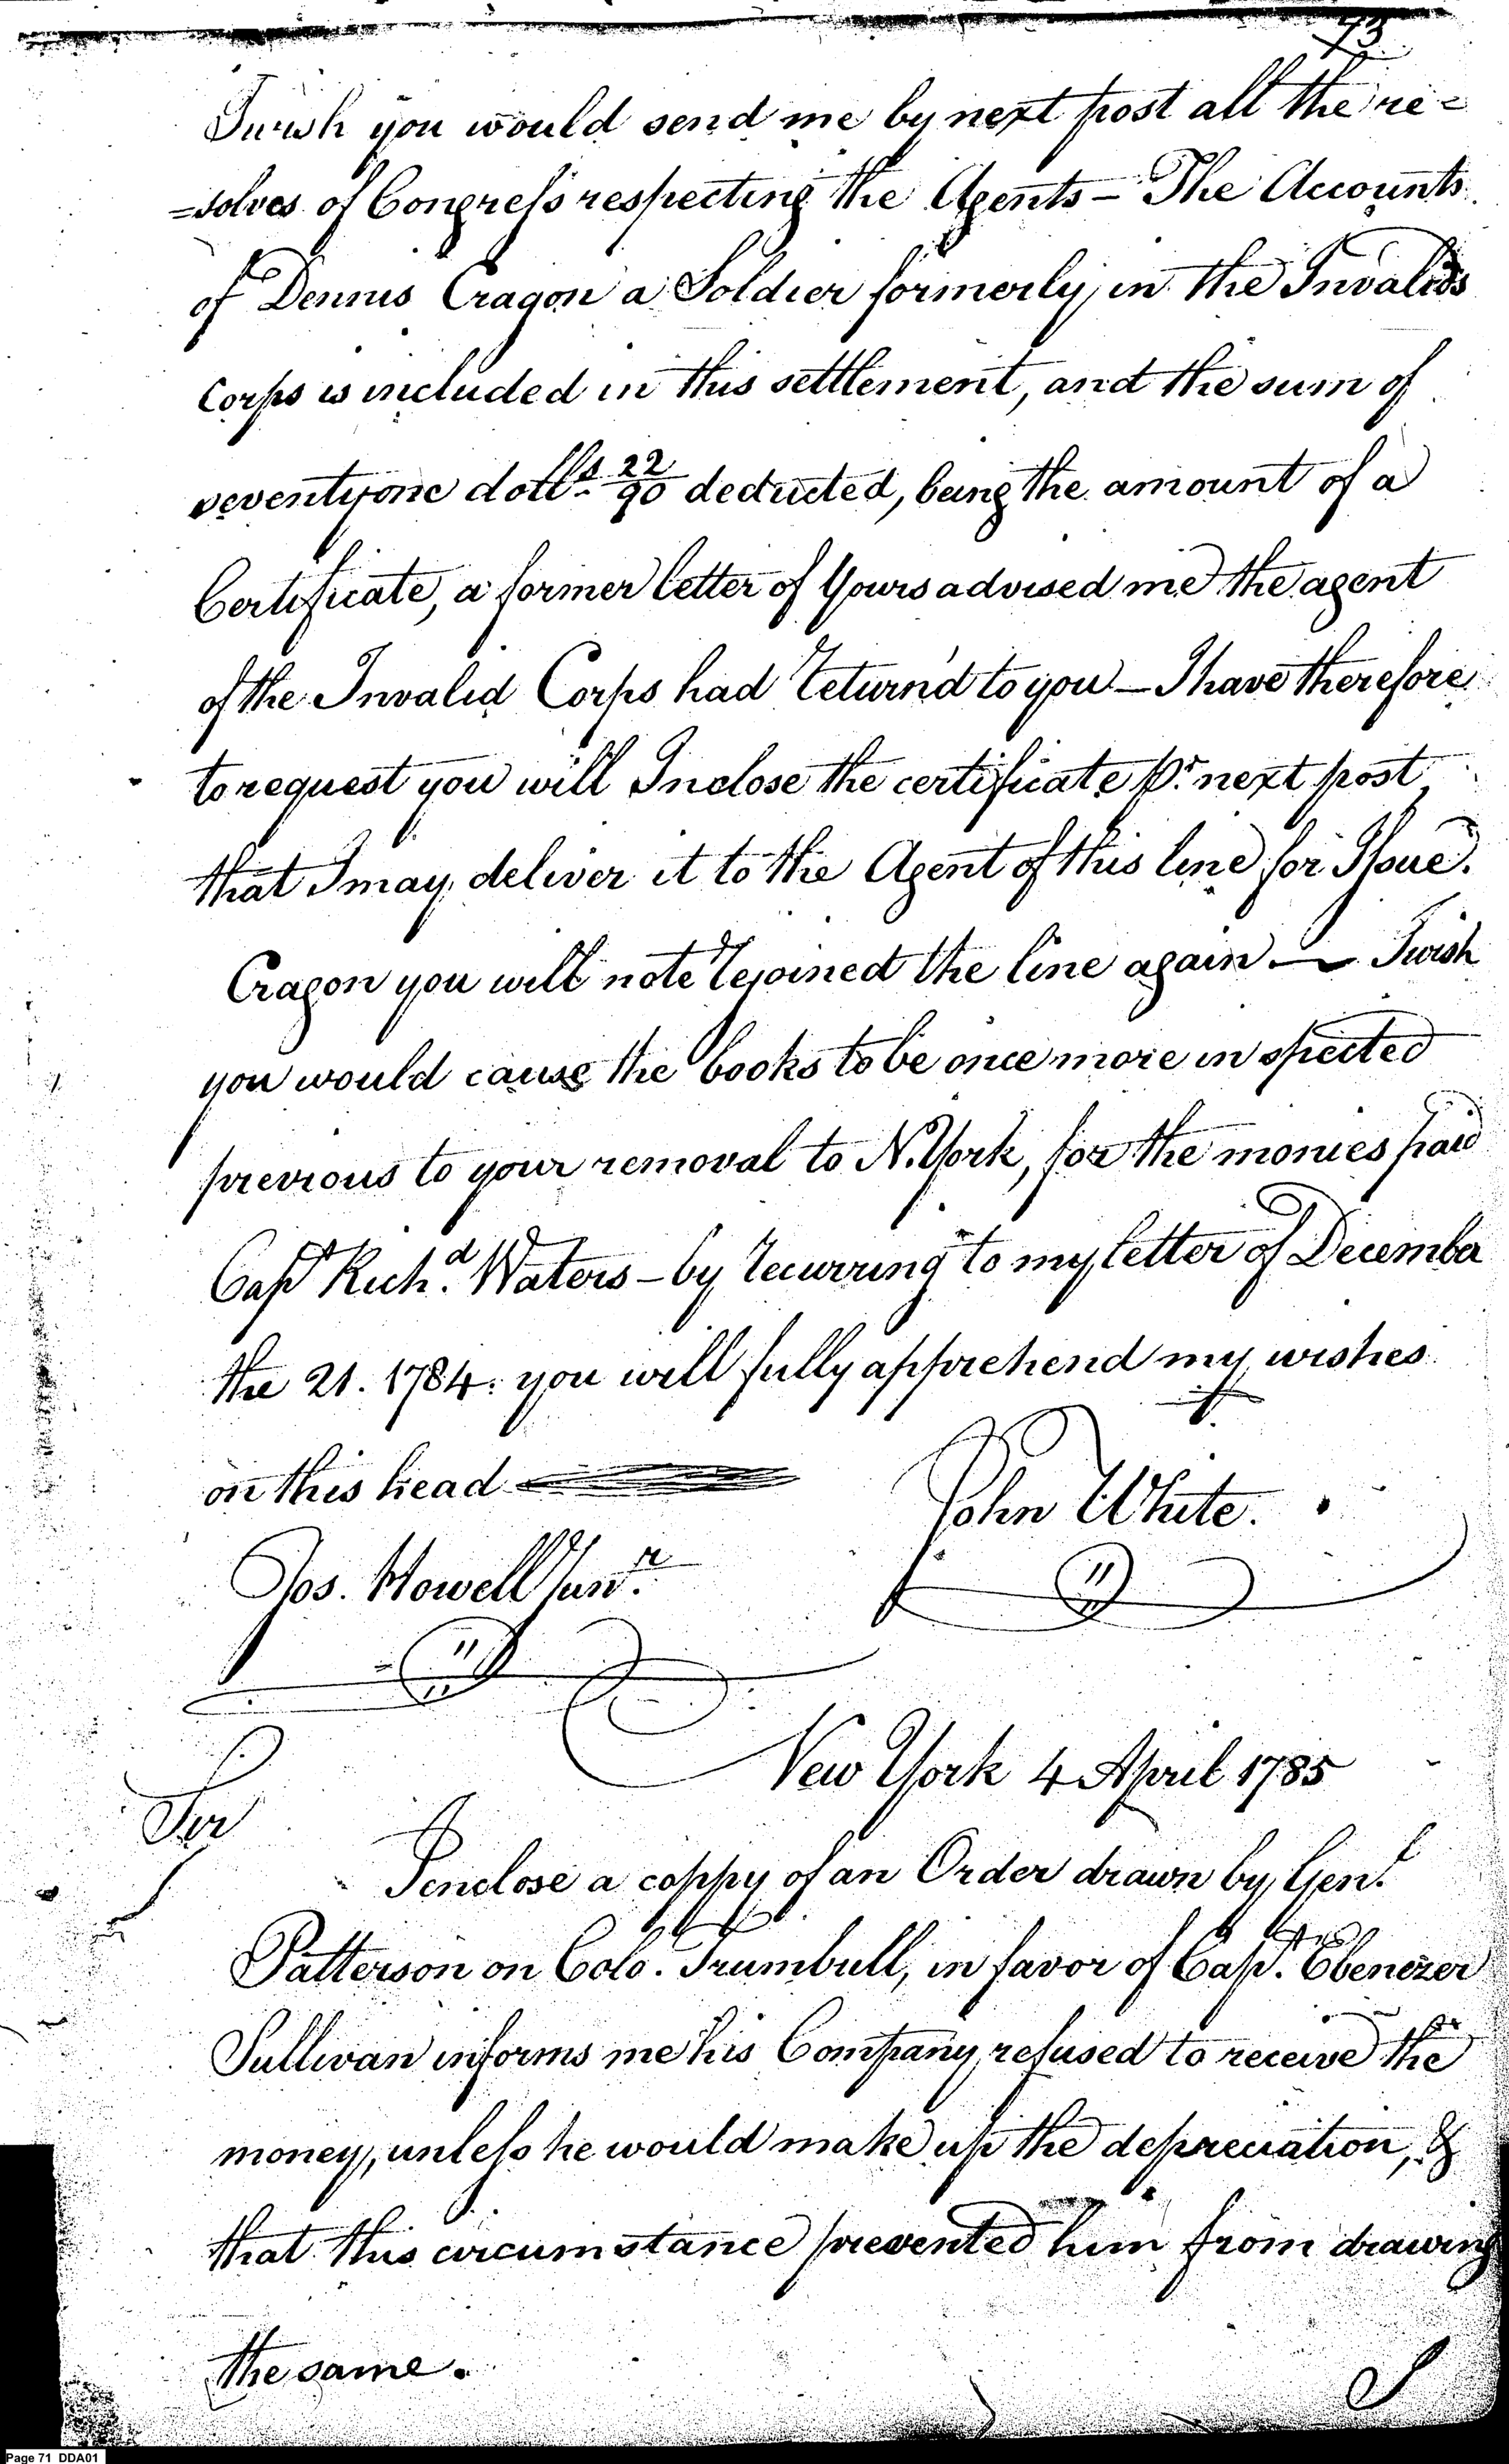 73
I wish you would send me by next post all the re=
=solves of Congress respecting the Agents – The Accounts
of Dennis Cragon a Soldier formerly in the Invalids
Corps is included in this settlement, and the sum of
seventyone dolls. 22/90 deducted, being the amount of a
Certificate, a former letter of Yours advised me the agent
of the Invalid Corps had return'd to you – I have therefore
to request you will Inclose the certificate pr. next post
that I may deliver it to the Agent of this line for Issue.
Cragon you will note rejoined the line again — I wish
you would cause the books to be once more inspected
previous to your removal to N. York, for the monies paid
Capt Richd. Waters – by recurring to my letter of December
the 21. 1784. you will fully apprehend my wishes
on this head
John White.
Jos. Howell Junr.
New York 4 April 1785
Sir
I enclose a coppy of an Order drawn by Genl.
Patterson on Colo. Trumbull, in favor of Capt. Ebenezer
Sullivan informs me his Company refused to receive the
money, unless he would make up the depreciation, &
that this circumstance prevented him from drawing
the same.
I
Page 71 DDA01